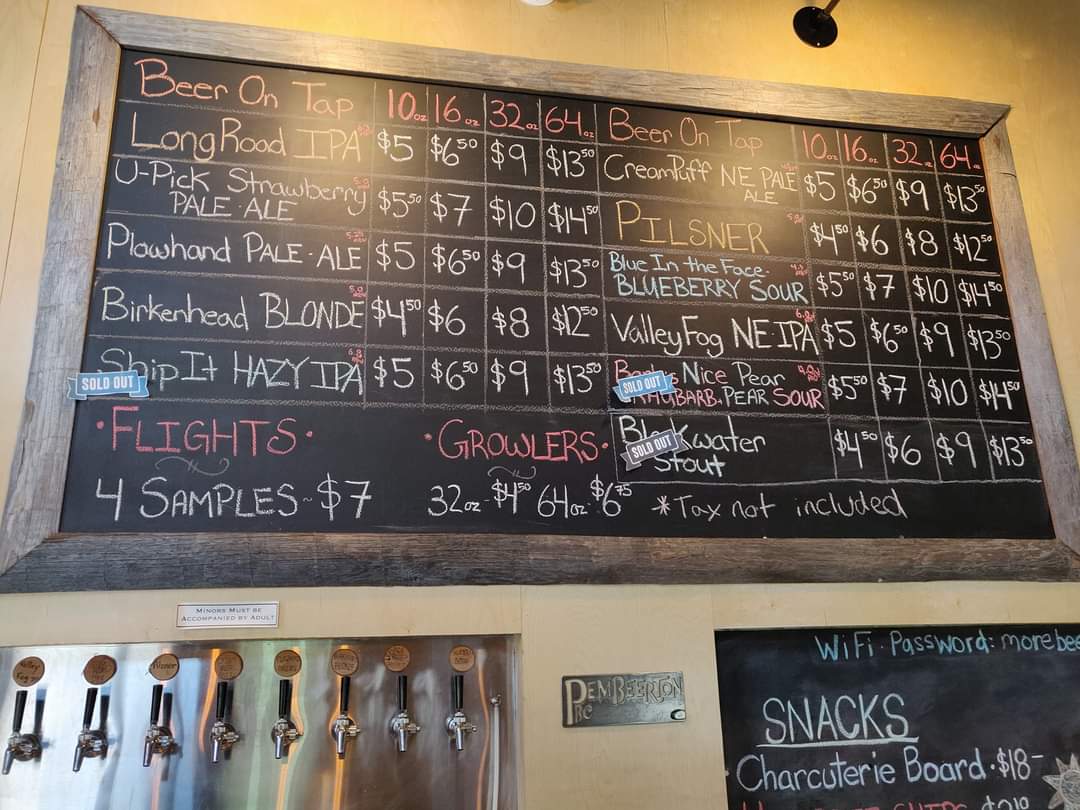 Beer On Tap 10oz 16oz 32oz 64oz
Long Road IPA $5 $6⁵⁰ $9 $13⁵⁰
U-Pick Strawberry
PALE ALE $5⁵⁰ $7 $10 $14⁵⁰
Plowhand PALE ALE $5 $6⁵⁰ $9 $13⁵⁰
Birkenhead BLONDE $4⁵⁰ $6 $8 $12⁵⁰
Ship It HAZY IPA $5 $6⁵⁰ $9 $13⁵⁰
SOLD OUT
Beer On Tap 10oz 16oz 32oz 64oz
CreamPuff NE PALE
ALE $5 $6⁵⁰ $9 $13⁵⁰
PILSNER $4⁵⁰ $6 $8 $12⁵⁰
Blue In the Face
BLUEBERRY SOUR $5⁵⁰ $7 $10 $14⁵⁰
Valley Fog NE IPA $5 $6⁵⁰ $9 $13⁵⁰
Nice Pear
RHUBARB-PEAR SOUR $5⁵⁰ $7 $10 $14⁵⁰
SOLD OUT
Blackwater
Stout $4⁵⁰ $6 $9 $13⁵⁰
SOLD OUT
•FLIGHTS•
4 SAMPLES ~ $7
•GROWLERS•
32oz - $4⁵⁰ 64oz - $6⁷⁵
*Tax not included
MINORS MUST BE
ACCOMPANIED BY ADULT
Valley
Fog
Pilsner
PEMBERTON
BC
WiFi Password: morebee
SNACKS
Charcuterie Board • $18-